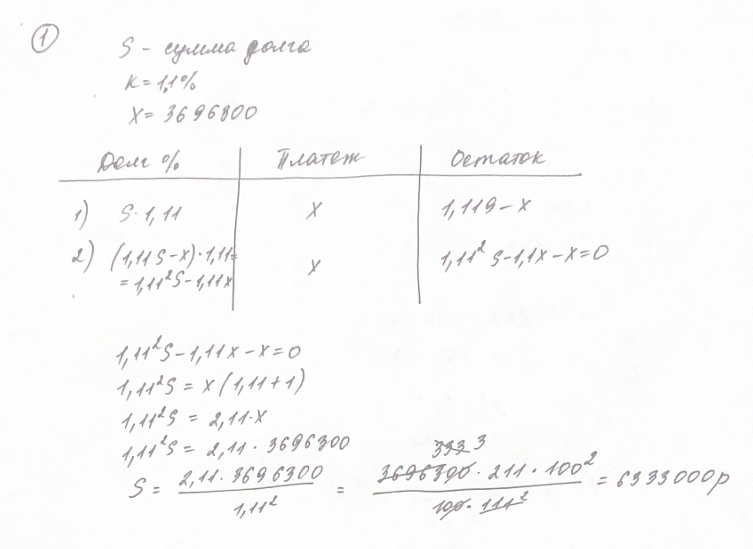 1
S - сумма долга
K = 1,1%
X = 3696300
Долг % Платеж Остаток
1) S·1,11 X 1,11S - X
2) (1,11S - X)·1,11= X 1,11² S - 1,1X - X = 0
= 1,11²S - 1,11X
1,11²S - 1,11X - X = 0
1,11²S = X(1,11+1)
1,11²S = 2,11·X
1,11²S = 2,11 · 3696300
333 3
S = 2,11 · 3696300 / 1,11² = 3696300 · 211 · 100² / 100 · 111² = 6333000р